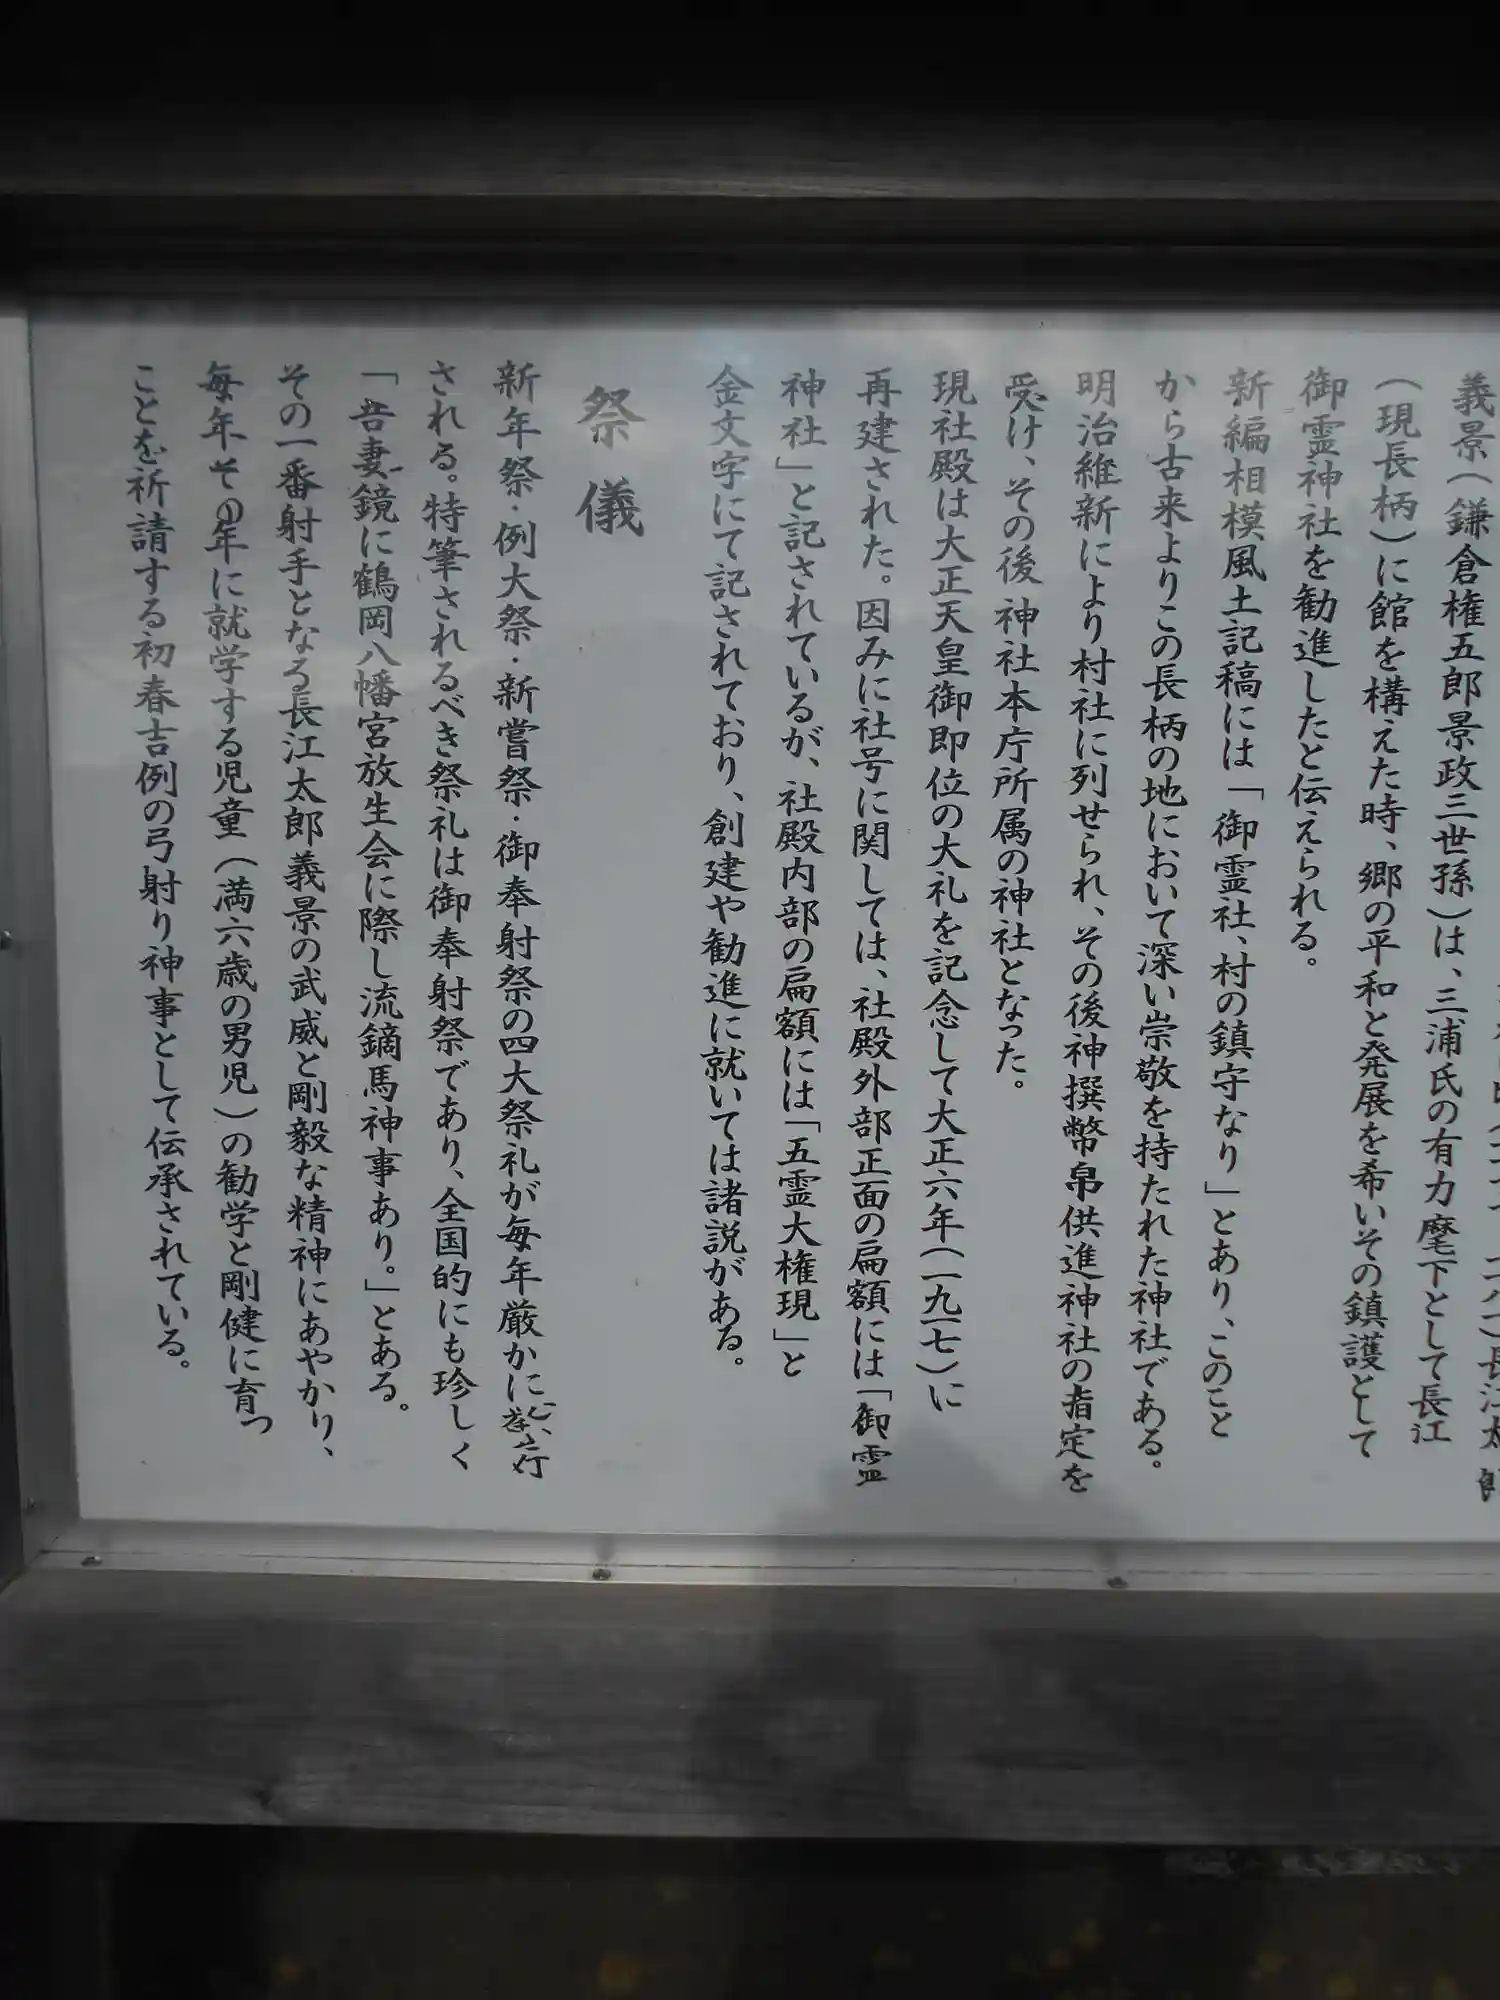 長江太郎
義景(鎌倉権五郎景政三世孫)は、三浦氏の有力麾下として長江
(現長柄)に館を構えた時、郷の平和と発展を希いその鎮護として
御霊神社を勧進したと伝えられる。
新編相模風土記稿には「御霊社、村の鎮守なり」とあり、このこと
から古来よりこの長柄の地において深い崇敬を持たれた神社である。
明治維新により村社に列せられ、その後神撰幣帛供進神社の指定を
受け、その後神社本庁所属の神社となった。
現社殿は大正天皇御即位の大礼を記念して大正六年(一九一七)に
再建された。因みに社号に関しては、社殿外部正面の扁額には「御霊
神社」と記されているが、社殿内部の扁額には「五霊大権現」と
金文字にて記されており、創建や勧進に就いては諸説がある。
祭儀
新年祭・例大祭・新嘗祭・御奉射祭の四大祭礼が毎年厳かに挙行
される。特筆されるべき祭礼は御奉射祭であり、全国的にも珍しく
「吾妻鏡に鶴岡八幡宮放生会に際し流鏑馬神事あり。」とある。
その一番射手となる長江太郎義景の武威と剛毅な精神にあやかり、
毎年その年に就学する児童(満六歳の男児)の勧学と剛健に育つ
ことを祈請する初春吉例の弓射り神事として伝承されている。